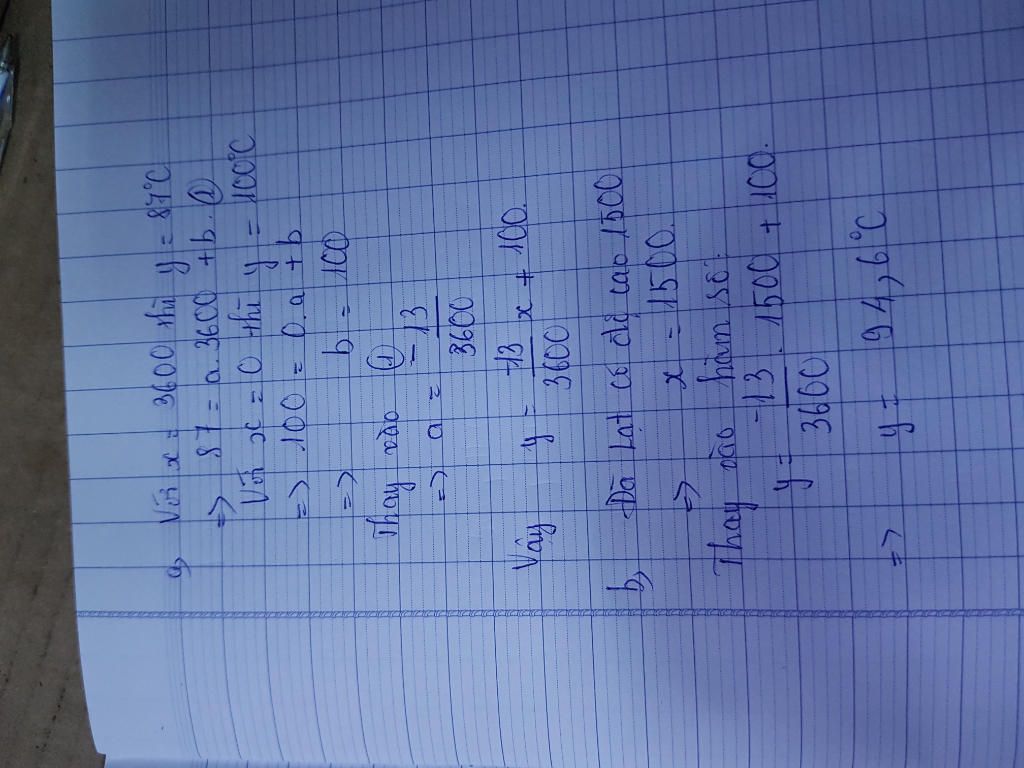 a, Với x = 3600 thì y = 87°C
=> 87 = a.3600 + b. ①
Với x = 0 thì y = 100°C
=> 100 = 0.a + b
=> b = 100
Thay vào ①
=> a = -13/3600
Vậy y = -13/3600 x + 100.
b, Đà Lạt có độ cao 1500
=> x = 1500.
Thay vào hàm số:
y = -13/3600 . 1500 + 100.
=> y = 94,6°C